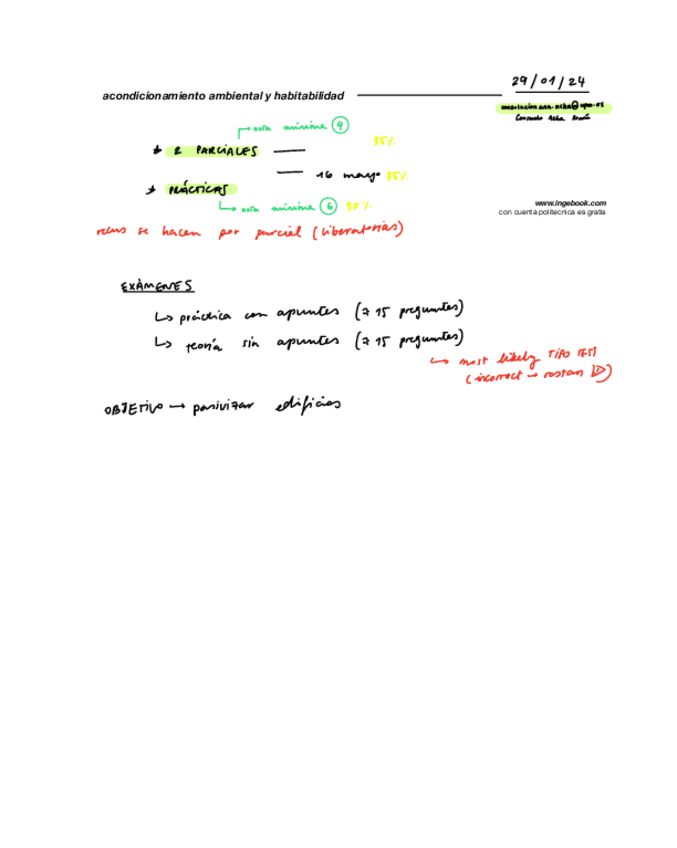 29/01/24
acondicionamiento ambiental y habitabilidad
Consuelo Acha Román
→ nota mínima 4
* 2 PARCIALES — 35%
— 16 mayo 35%
* PRÁCTICAS
↳ nota mínima 6 30%
www.ingebook.com
con cuenta politecnica es gratis
recus se hacen por parcial (liberatorias)
EXÁMENES
↳ práctica con apuntes (7 15 preguntas)
↳ teoría sin apuntes (7 15 preguntas)
↳ most likely TIPO TEST
(incorrect → restan)
OBJETIVO → pasivizar edificios